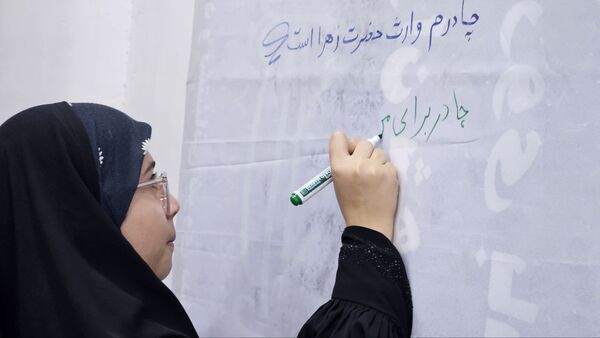 چادرم وارث حضرت زهرا است
چادر برای م